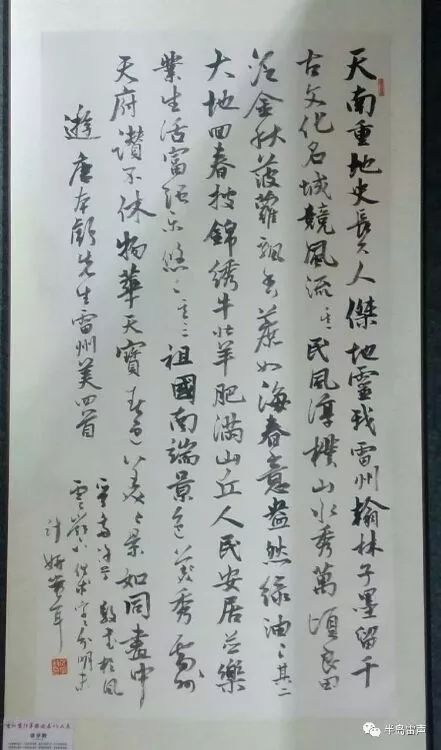 天南重地史長久人傑地靈我雷州翰林子墨留千
古文化名城競風流其一民風淳樸山水秀萬頃良田
泛金秋菠蘿飄香蔗如海春意盎然綠油〻其二
大地回春披錦綉牛壯羊肥滿山丘人民安居樂
業生活富裕樂悠〻其三祖國南端景色美秀雷州
天府讚不休物華天寶春色美〻景如同畫中
遊唐本先生雷州美四首
半岛雷声